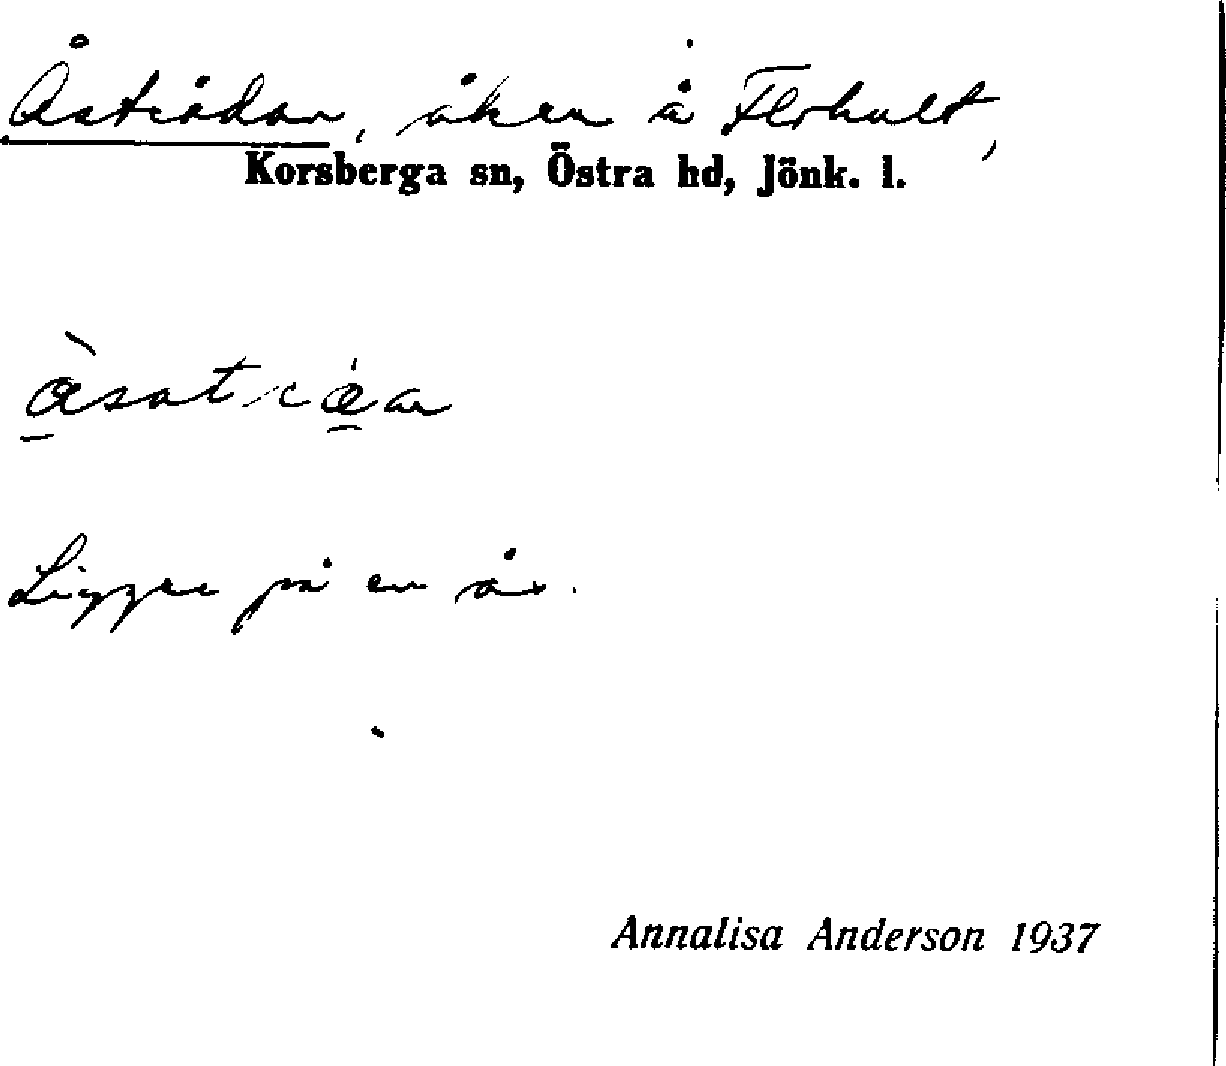 Åsträdan, åker å Flohult,
Korsberga sn, Östra hd, Jönk. l.
Ligger på en ås.
Annalisa Anderson 1937